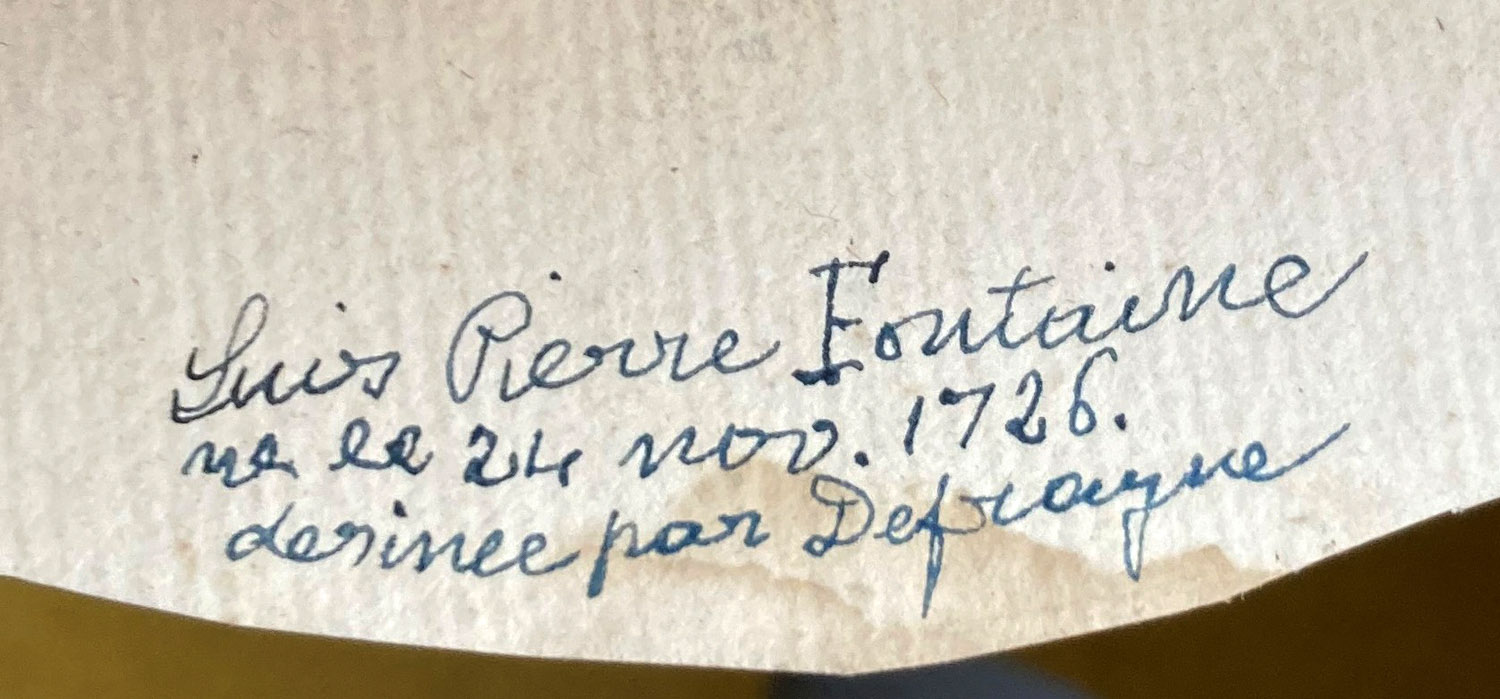 Luis Pierre Fontaine
ne le 24 nov. 1726.
desinee par Defrayne